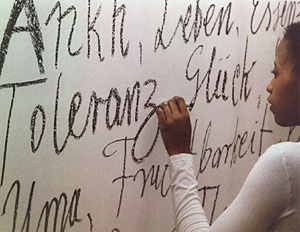 A Ankh, Leben,
Toleranz Glück,
Fruchtbarkeit
Uma,